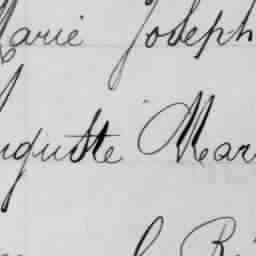 Marie Joseph
Auguste Mar